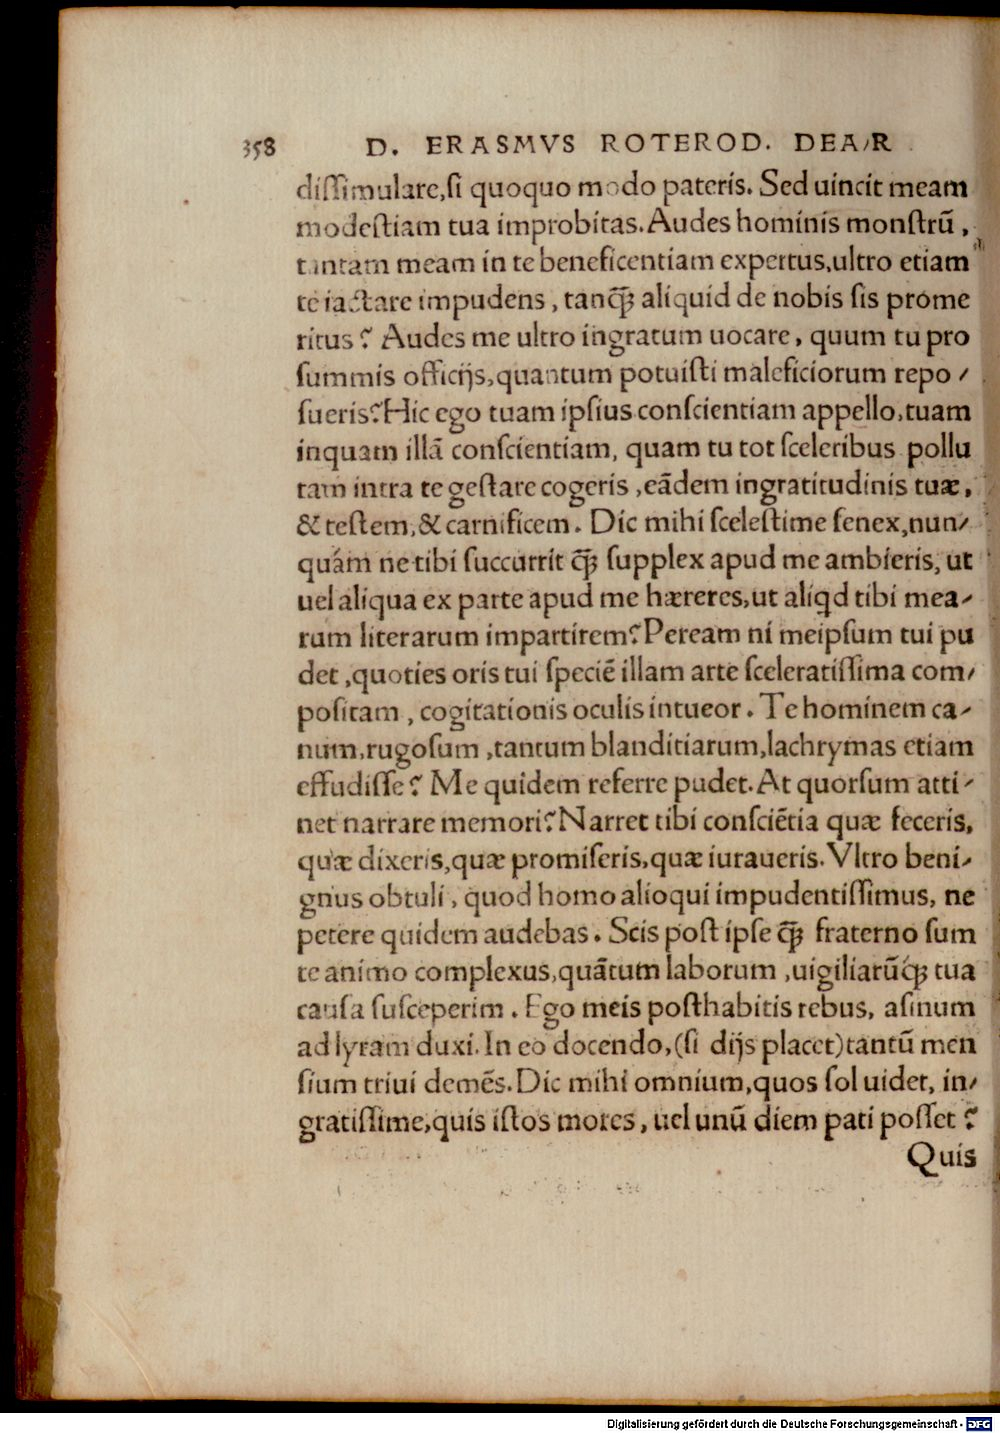 358 D. ERASMVS ROTEROD. DEA/R
diſſimulare,ſi quoquo modo pateris. Sed uincit meam
modeſtiam tua improbitas.Audes hominis monſtrũ ,
tantam meam in te beneficentiam expertus,ultro etiam
te iactare impudens , tanq̃ꝫ aliquid de nobis ſis prome
ritus? Audes me ultro ingratum uocare, quum tu pro
ſummis officijs,quantum potuiſti maleficiorum repo/
ſueris?Hic ego tuam ipſius conſcientiam appello,tuam
inquam illã conſcientiam, quam tu tot ſceleribus pollu
tam intra te geſtare cogeris ,eãdem ingratitudinis tuæ,
& teſtem,& carnificem. Dic mihi ſceleſtime ſenex,nun/
quám ne tibi ſuccurrit q̃ꝫ ſupplex apud me ambieris, ut
uel aliqua ex parte apud me hæreres,ut aliqd tibi mea/
rum literarum impartirem?Peream ni meipſum tui pu
det ,quoties oris tui ſpeciẽ illam arte ſceleratiſſima com/
poſitam , cogitationis oculis intueor. Te hominem ca/
num,rugoſum ,tantum blanditiarum,lachrymas etiam
effudiſſe? Me quidem referre pudet.At quorſum atti/
net narrare memori?Narret tibi conſciẽtia quæ feceris,
quæ dixeris,quæ promiſeris,quæ iuraueris.Vltro beni/
gnius obtuli , quod homo alioqui impudentiſſimus, ne
petere quidem audebas. Scis poſt ipſe q̃ꝫ fraterno ſum
te animo complexus,quãtum laborum ,uigiliarũq̃ꝫ tua
cauſa ſuſceperim . Ego meis poſthabitis rebus, aſinum
ad lyram duxi.In eo docendo,(ſi dijs placet)tantũ men
ſium triui demẽs.Dic mihi omnium,quos ſol uidet, in/
gratiſſime,quis iſtos mores, uel unũ diem pati poſſet ?
Quis
Digitalisierung gefördert durch die Deutsche Forschungsgemeinschaft - DFG